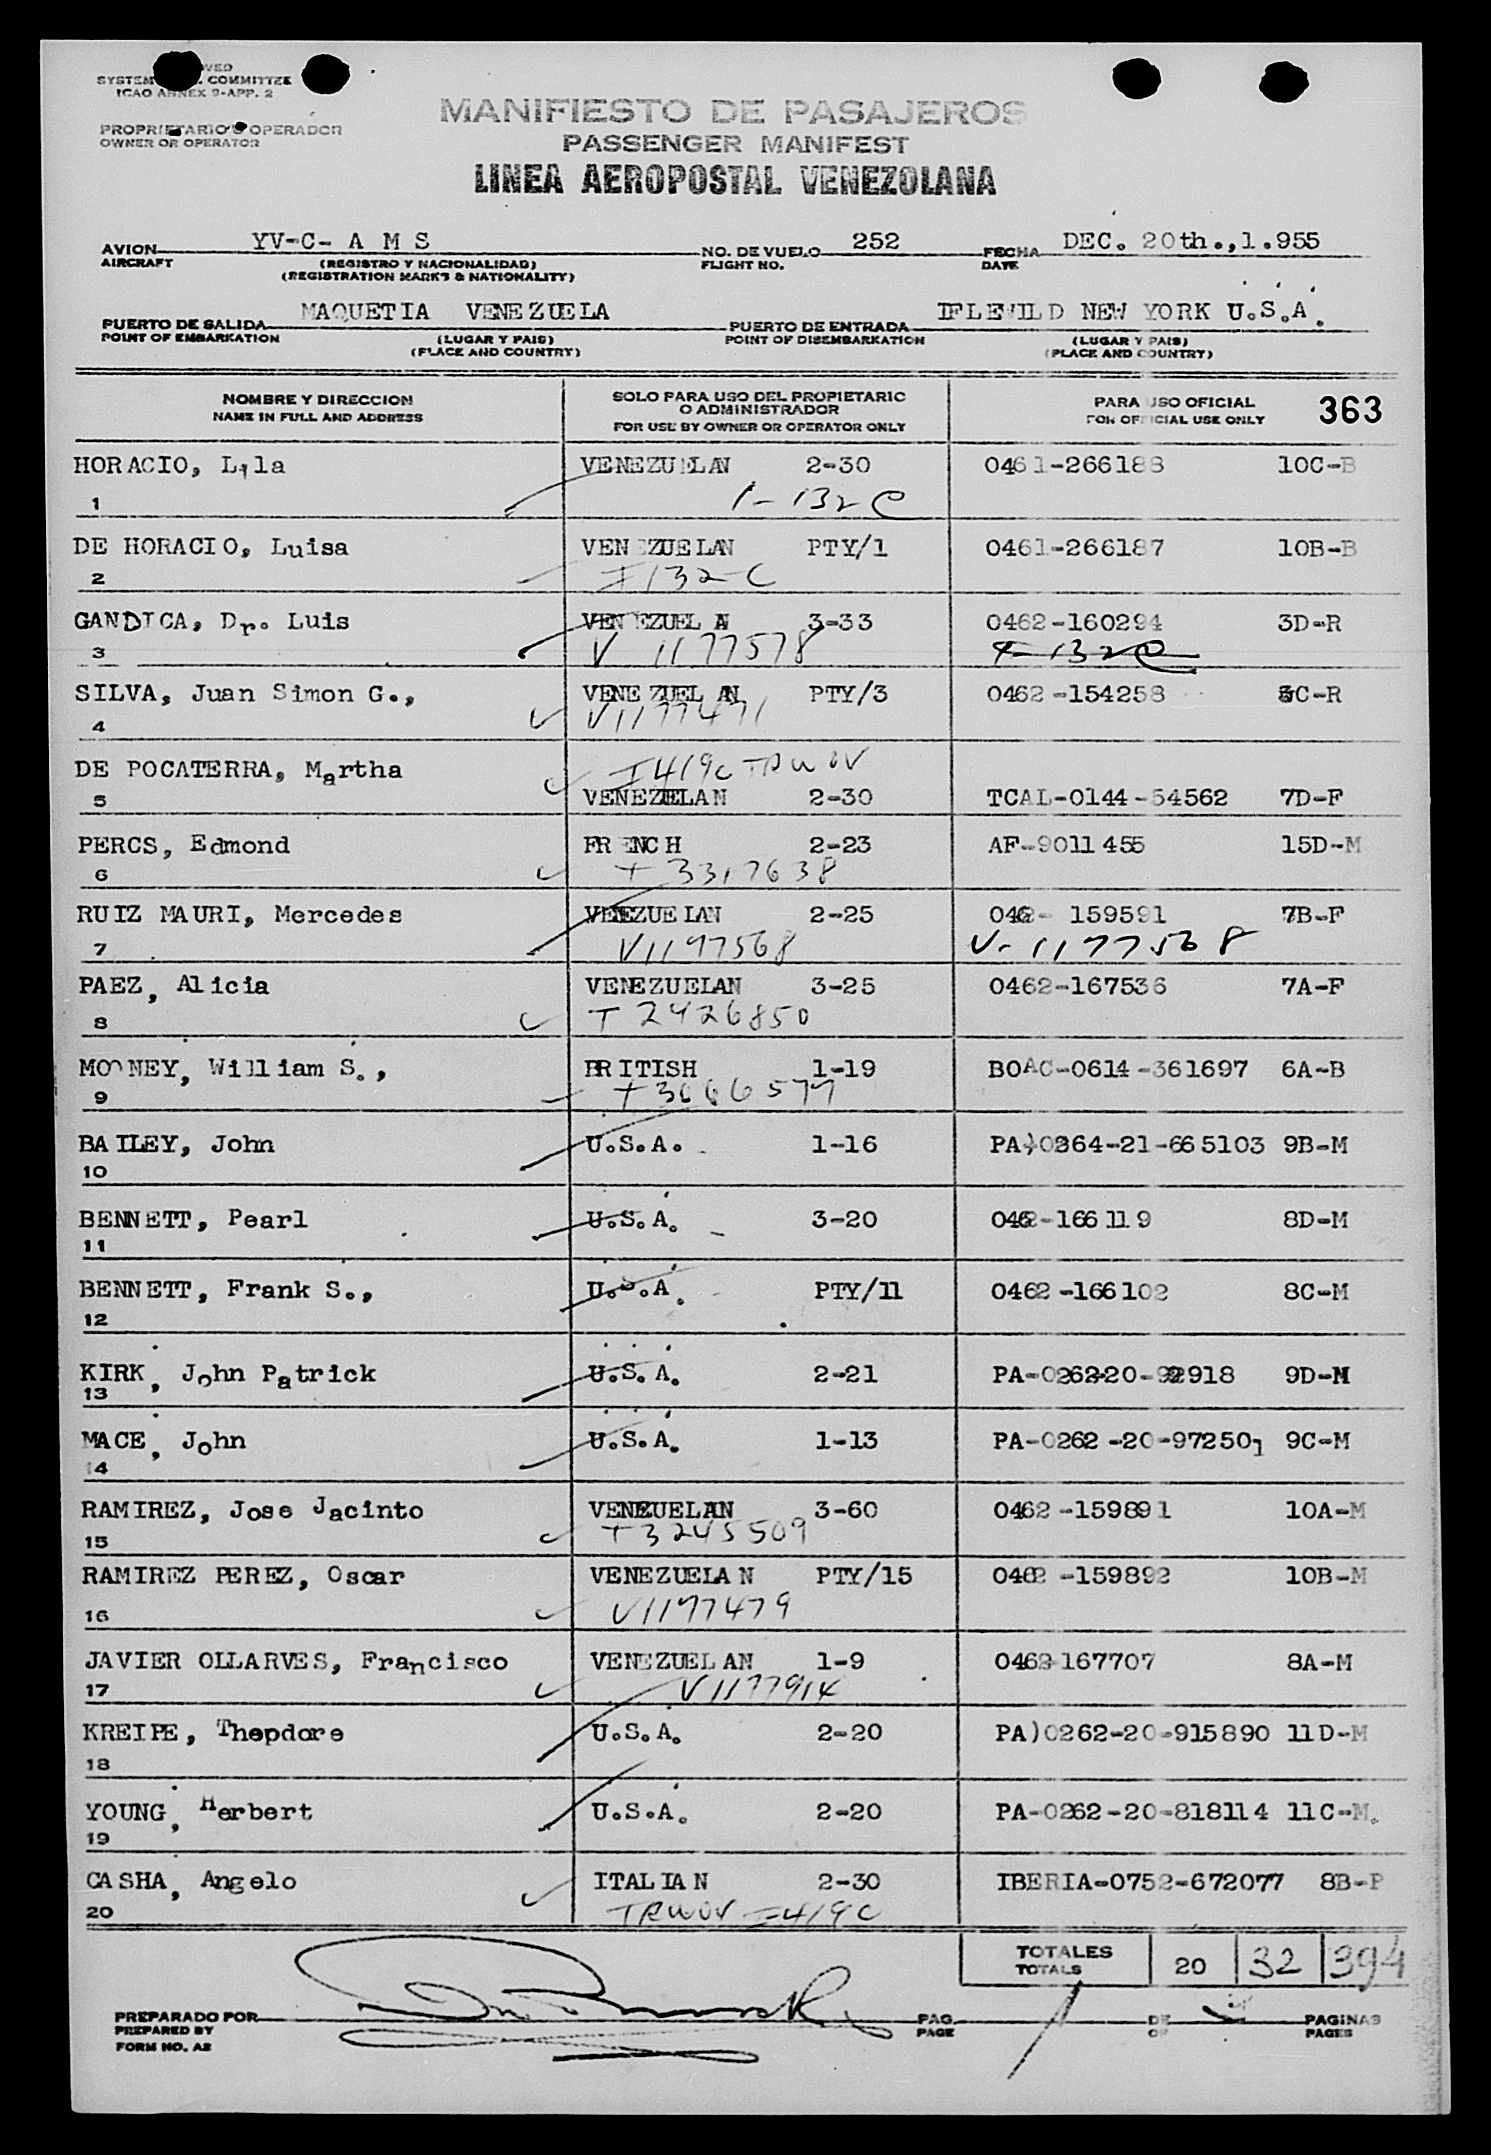 SYSTEM COMMITTEE
ICAO ANNEX 9-APP. 2
PROPRIETARIO'S OPERADOR
OWNER OR OPERATOR
MANIFIESTO DE PASAJEROS
PASSENGER MANIFEST
LINEA AEROPOSTAL VENEZOLANA
AVION YV-C- A M S NO. DE VUELO 252 FECHA DEC. 20th.,1.955
AIRCRAFT (REGISTRO Y NACIONALIDAD) FLIGHT NO. DATE
(REGISTRATION MARKS & NATIONALITY)
PUERTO DE SALIDA MAQUETIA VENEZUELA PUERTO DE ENTRADA IFLEWILD NEW YORK U.S.A.
POINT OF EMBARKATION (LUGAR Y PAIS) POINT OF DISEMBARKATION (LUGAR Y PAIS)
(PLACE AND COUNTRY) (PLACE AND COUNTRY)
NOMBRE Y DIRECCION SOLO PARA USO DEL PROPIETARIO PARA USO OFICIAL 363
NAME IN FULL AND ADDRESS O ADMINISTRADOR FOR OFFICIAL USE ONLY
FOR USE BY OWNER OR OPERATOR ONLY
HORACIO, Lila VENEZUELAN 2-30 0461-266188 10C-B
1 1-132C
DE HORACIO, Luisa VENEZUELAN PTY/1 0461-266187 10B-B
2 I132-C
GANDICA, Dr. Luis VENEZUELAN 3-33 0462-160294 3D-R
3 V 1177578 I-132C
SILVA, Juan Simon G., VENEZUELAN PTY/3 0462-154258 3C-R
4 V1177471
DE POCATERRA, Martha I419C TRWOV
5 VENEZUELAN 2-30 TCAL-0144-54562 7D-F
PERCS, Edmond FRENCH 2-23 AF-9011455 15D-M
6 T 3317638
RUIZ MAURI, Mercedes VENEZUELAN 2-25 0462- 159591 7B-F
7 V1197568 V-1177568
PAEZ, Alicia VENEZUELAN 3-25 0462-167536 7A-F
8 T 2426850
MOONEY, William S., BRITISH 1-19 BOAC-0614-361697 6A-B
9 T3666577
BAILEY, John U.S.A. 1-16 PA)0264-21-665103 9B-M
10
BENNETT, Pearl U.S.A. 3-20 0462-166119 8D-M
11
BENNETT, Frank S., U.S.A. PTY/11 0462-166102 8C-M
12
KIRK, John Patrick U.S.A. 2-21 PA-0262-20-922918 9D-M
13
MACE, John U.S.A. 1-13 PA-0262-20-972501 9C-M
14
RAMIREZ, Jose Jacinto VENEZUELAN 3-60 0462-159891 10A-M
15 T3245509
RAMIREZ PEREZ, Oscar VENEZUELAN PTY/15 0462-159892 10B-M
16 V1177479
JAVIER OLLARVES, Francisco VENEZUELAN 1-9 0462-167707 8A-M
17 V1177914
KREIPE, Thepdore U.S.A. 2-20 PA)0262-20-915890 11D-M
18
YOUNG, Herbert U.S.A. 2-20 PA-0262-20-818114 11C-M.
19
CASHA, Angelo ITALIAN 2-30 IBERIA-0752-672077 8B-P
20 TRWOV I419C
TOTALES 20 32 394
TOTALS
PREPARADO POR PAG. 1 DE PAGINAS
PREPARED BY PAGE OF PAGES
FORM NO. A2